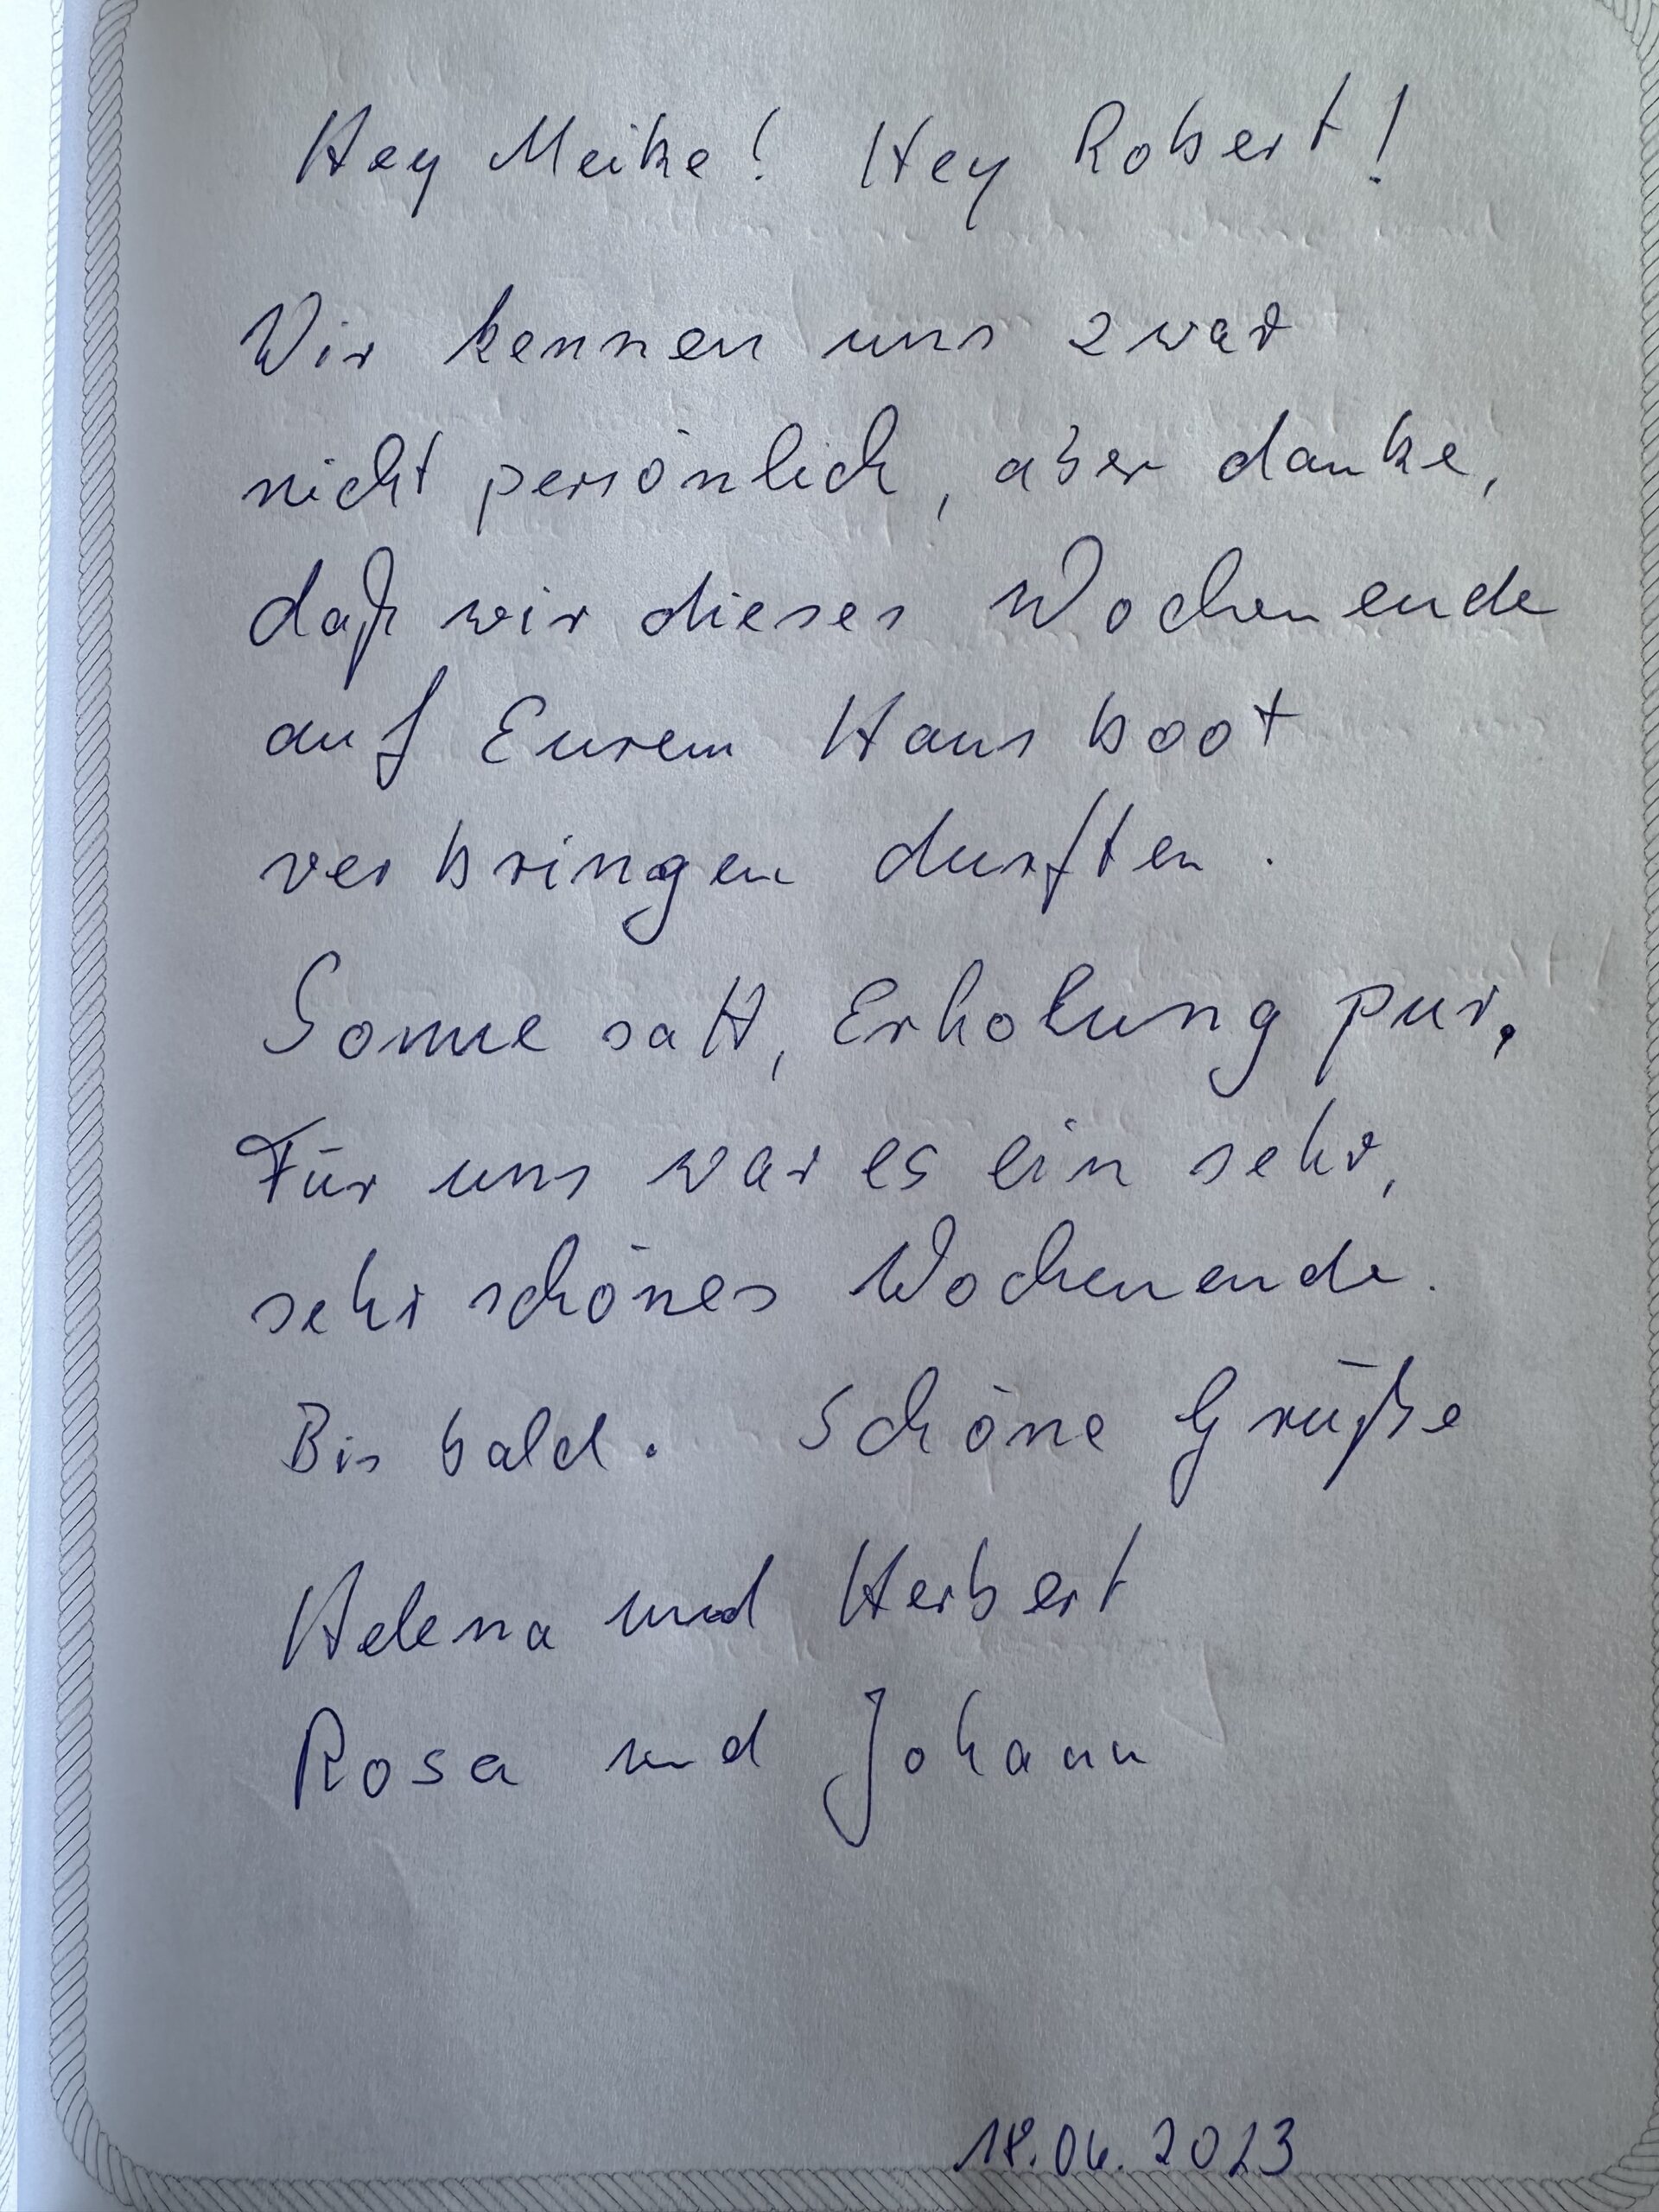 Hey Meike! Hey Robert!
Wir kennen uns zwar
nicht persönlich, aber danke,
daß wir dieses Wochenende
auf Eurem Hausboot
verbringen durften.
Sonne satt, Erholung pur.
Für uns war es ein sehr,
sehr schönes Wochenende.
Bis bald. Schöne Grüße
Helena und Herbert
Rosa und Johann
18.06.2023